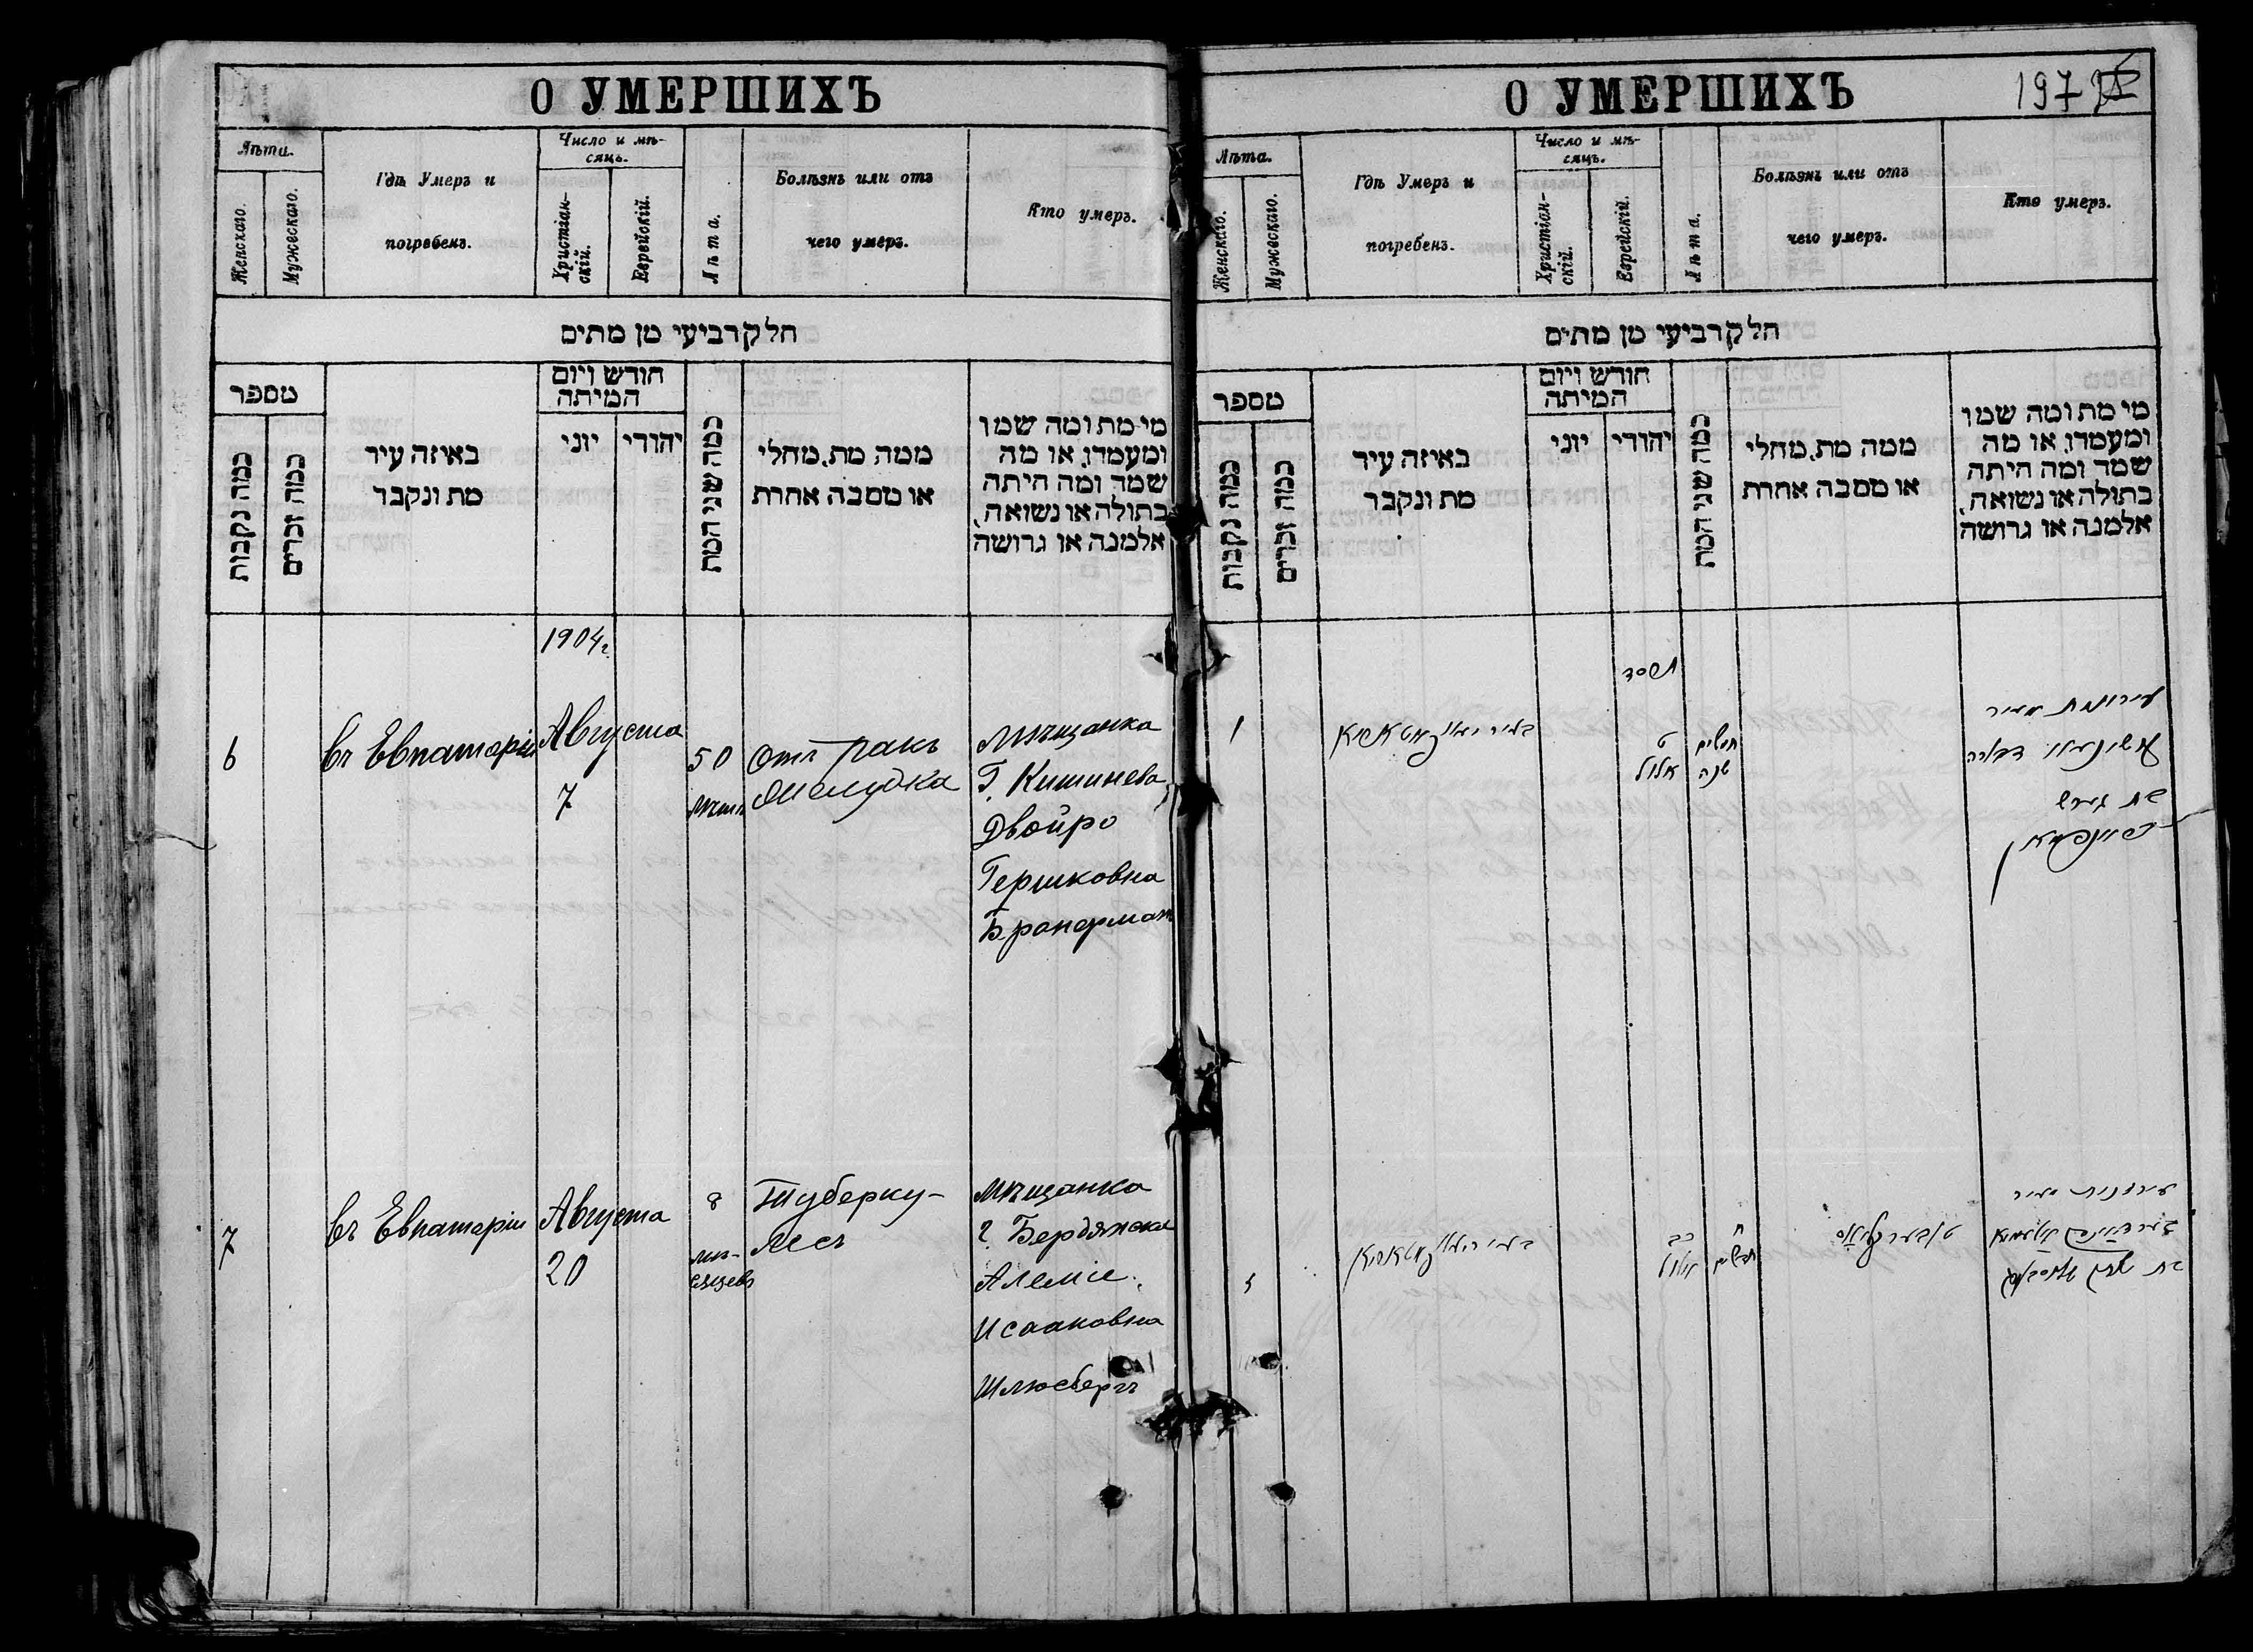 О УМЕРШИХЪ
Лѣти.
Женскаго.
Мужескаго.
Гдѣ Умеръ и
погребенъ.
Число и мѣ-
сяцъ.
Христіан-
скій.
Еврейскій.
Лѣта.
Болѣзнь или отъ
чего умеръ.
Кто умеръ.
חלק רביעי מן מתים
מספר
כמה נקבות
כמה זכרים
באיזה עיר
מת ונקבר
חודש ויום
המיתה
יוני
יהודי
כמה שני המת
ממה מת, מחלי
או מסבה אחרת
מי מת ומה שמו
ומעמדו, או מה
שמה ומה היתה
בתולה או נשואה,
אלמנה או גרושה
1904 г.
6
въ Евпаторіи
Августа
7
50
лѣтъ
Отъ ракъ
желудка
Мѣщанка
Г. Кишинева
Двойро
Гершковна
7
въ Евпаторіи
Августа
20
8
мѣ-
сяцевъ
Туберку-
лесъ
Мѣщанка
г. Бердянска
Исааковна
Шлюсбергъ
О УМЕРШИХЪ
197
Лѣта.
Женскаго.
Мужескаго.
Гдѣ Умеръ и
погребенъ.
Число и мѣ-
сяцъ.
Христіан-
скій.
Еврейскій.
Лѣта.
Болѣзнь или отъ
чего умеръ.
Кто умеръ.
חלק רביעי מן מתים
מספר
כמה נקבות
כמה זכרים
באיזה עיר
מת ונקבר
חודש ויום
המיתה
יוני
יהודי
כמה שני המת
ממה מת, מחלי
או מסבה אחרת
מי מת ומה שמו
ומעמדו, או מה
שמה ומה היתה
בתולה או נשואה,
אלמנה או גרושה
תרסד
ט
אלול
חמשים
שנה
מעיר
דבורה
בת הירש
כב
אלול
ח
חדשים
מעיר
בת